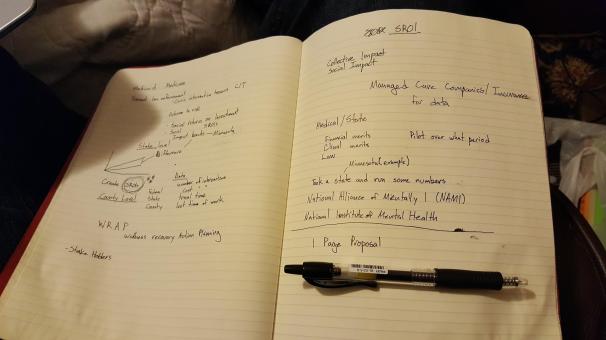 Medicaid Medicare
law enforcement - Crisis intervention CIT
Return to risk
- Social return on Investment
- Social SROI
Impact bonds - Minnesota
State level
Difference
Create SROI
County Level
Data
Federal number of interventions
State cost " "
County travel time
lost time of work
WRAP
wellness recovery Action Planning
- Stake Holders
SROI
Collective Impact
Social Impact
Managed Care Companies/Insurance
for data
Medical/State
Financial merits
Clinical merits
Law
Pilot over what period
Minnesota(example)
Take a state and run some numbers
National Alliance of Mentally I (NAMI)
National Institute of Mental Health
1 Page Proposal